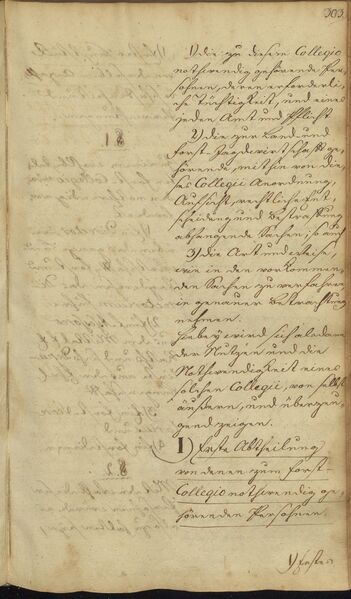 303.
1) die zu diesem Collegio
nothwendig gehörende Per-
sohnen, deren erforderli-
che Tüchtigkeit, und eines
jeden Amt und Pflicht
2) die zur Land- und
Forst-Jagdwirtschafft ge-
hörende, mithin von die-
ses Collegii Anordnung,
Aufsicht, rechtlicher Ent-
scheidung und Bestraffung
abhangende Sachen, so auch
3) die Art und Weise,
wie in den vorkommen-
den Sachen zu verfahren
in genauer Betrachtung
nehmen.
Hiebey wird sich alsdann
der Nutzen und die
Nothwendigkeit eines
solchen Collegii, von selbst
äussern, und überzeu-
gend zeigen.
I) Erste Abtheilung
von denen zum Forst-
Collegio nothwendig ge-
hörenden Persohnen.
1) Erstes